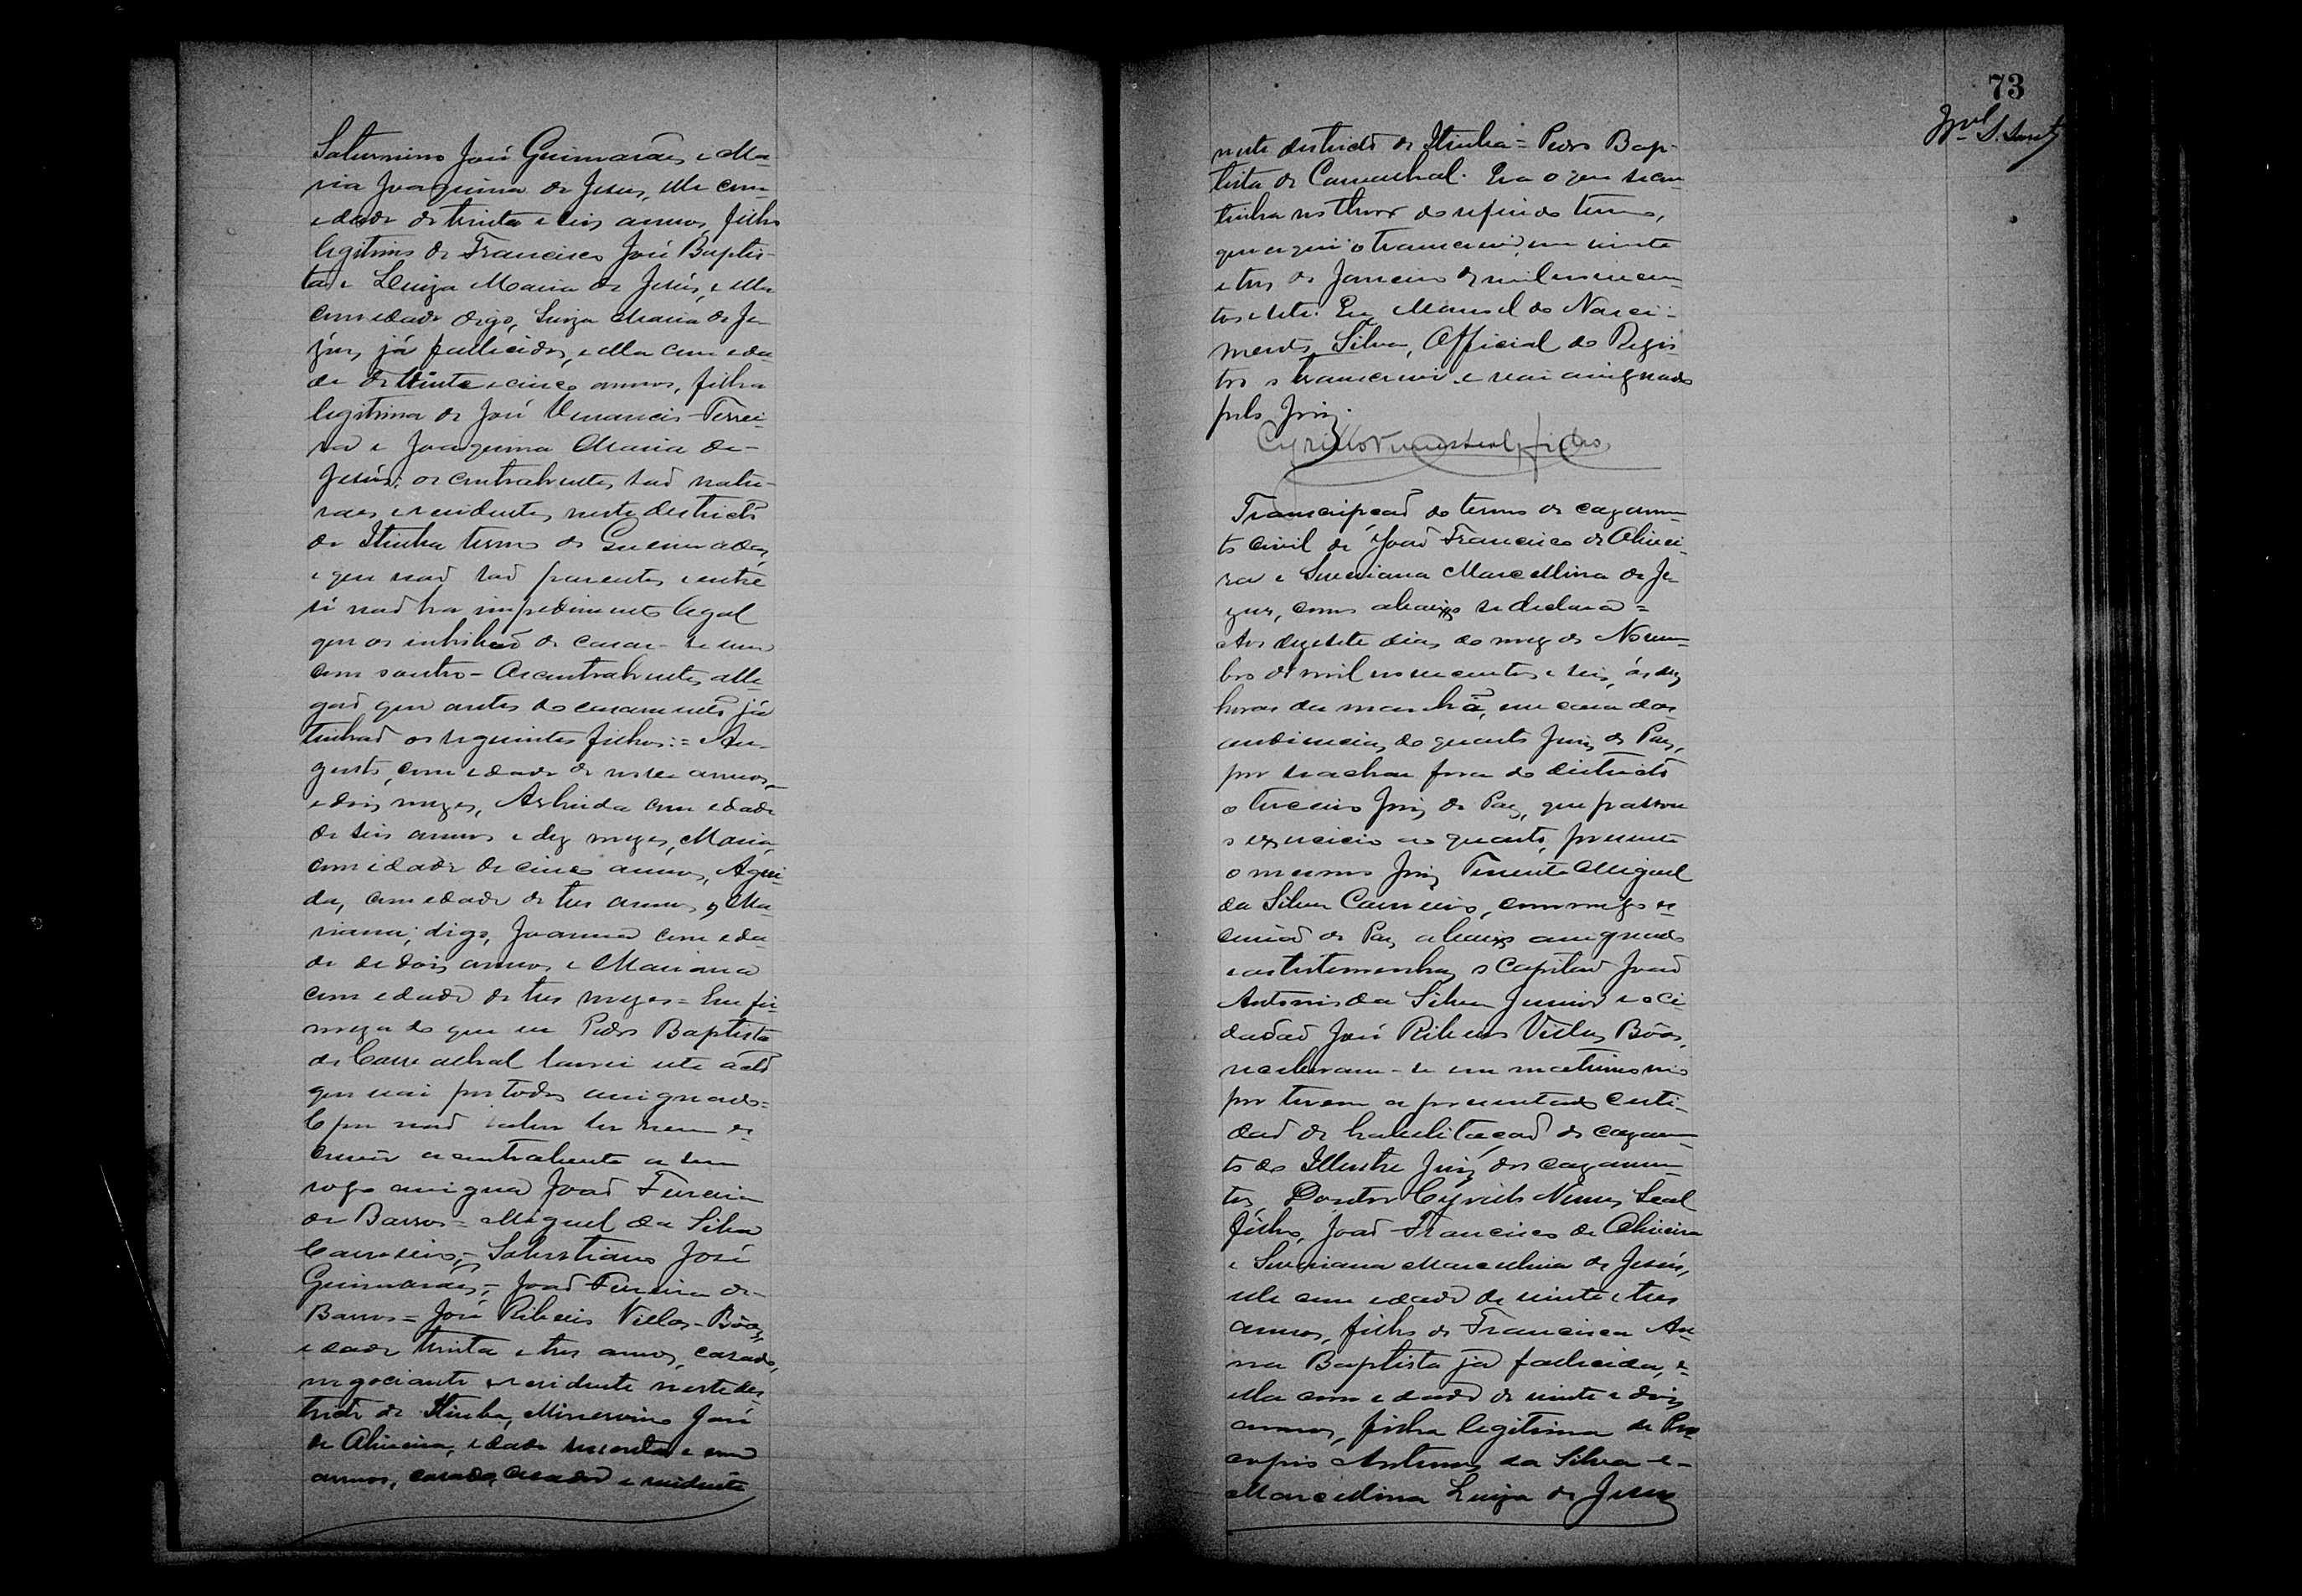 Saturnino José Guimarães e Ma-
ria Joaquina de Jesus, elle com
edade de trinta e seis annos, filho
legitimo de Francisco José Baptis-
ta e Luiza Maria de Jesús, e ella
com edade digo, Luiza Maria de Je-
zus, já fallecidos, e ella com eda-
de de trinta e cinco annos, filha
legitima de José Venancio Ferrei-
ra e Joaquina Maria de
Jesús; os contrahentes são natu-
raes e residentes neste districto
de Itiuba termo de Queimadas,
e que não são parentes e entre
si não ha impedimento legal
que os inhibão de casar-se um
com o outro - Os contrahentes alle-
gão que antes do casamento já
tinhão os seguintes filhos: = Au-
gusto, com edade de nove annos,
e dois mezes, Arlinda com edade
de seis annos e dez mezes, Maria,
com idade de cinco annos, Agui-
da, com edade de tres annos, e Ma-
rianna, digo, Joanna com eda-
de de dois annos e Marianna
com edade de tres mezes = Em fir-
meza do que eu Pedro Baptista
de Carvalhal lavrei este acto
que vai por todos assignado =
E por não saber ler nem es-
crever a contrahente a seu
rogo assigna João Ferreira
de Barros = Miguel da Silva
Carneiro, = Salustiano José
Guimarães, = João Ferreira de
Barros = José Ribeiro Villas-Bôas,
edade trinta e tres annos, casado,
negociante e residente neste dis-
tricto de Itiuba, Minervino José
de Oliveira, edade sessenta e um
annos, casado, creador e residente
73
neste districto de Itiuba = Pedro Bap-
tista de Carvalhal. Era o que se con-
tinha no theor do referido termo,
que aqui o transcrevi, em vinte
e tres de Janeiro de mil novecen-
tos e sete. Eu Manoel do Nasci-
mento Silva, Official do Regis-
tro o transcrevi e vai assignado
pelo Juiz.
Cyrillo Nunes Leal Filho
Transcripção do termo de cazamen-
to civil de João Francisco de Olivei-
ra e Marcellina de Je-
zus, como abaixo se declara =
Aos dezesete dias do mez de Novem-
bro de mil novecentos e seis, ás dez
horas da manhã, em casa das
audiencias do quarto Juiz de Paz,
por se achar fora do districto
o terceiro Juiz de Paz, que passou
o exercicio ao quarto, presente
o mesmo Juiz Tenente Miguel
da Silva Carneiro, commigo es-
crivão de Paz abaixo assignado
e as testemunhas o Capitão João
Antonio da Silva Junior e o Ci-
dadão José Ribeiro Villas Bôas,
receberam-se em matrimonio
por terem apresentado certi-
dão de habilitação de cazamen-
to do Illustre Juiz dos cazamen-
tos Doutor Cyrillo Nunes Leal
filho, João Francisco de Oliveira
e Marcellina de Jesús,
elle com edade de vinte e tres
annos, filho de Francisca An-
na Baptista já fallecida, e
ella com edade de vinte e dois
annos, filha legitima de Pro-
copio Antunes da Silva e
Marcellina Luiza de Jesus